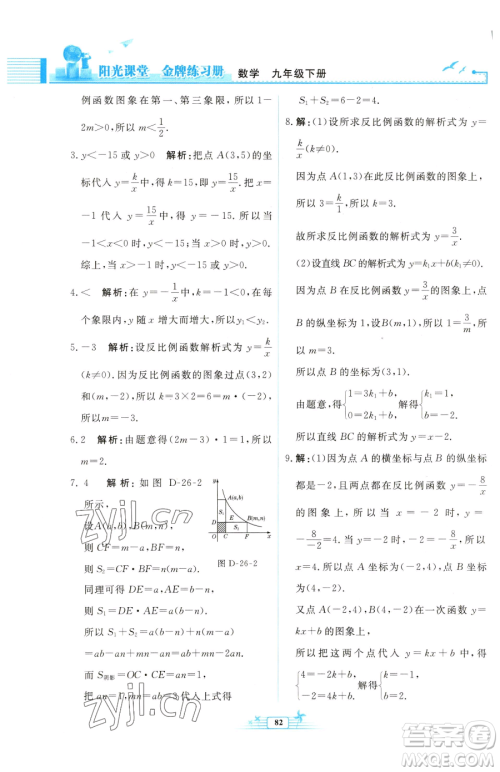 阳光课堂 金牌练习册 数学 九年级下册
例函数图象在第一、第三象限,所以1-
2m>0,所以m<1/2.
3.y<-15或y>0 解析:把点A(3,5)的坐
标代入y=k/x中,得y=15/x,把x=
-1代入y=15/x中,得y=-15.
当-1<x<0时,y<-15;当x>0时,y>0.
综上,当x>-1时,y<-15或y>0.
4.< 解析:在y=-1/x中,k=-1<0,在每
个象限内,y随x增大而增大,所以y₁<y₂.
5.-3 解析:设反比例函数解析式为y=k/x
(k≠0).因为反比例函数图象过点(3,2)
和(m,-2),所以k=3×2=-2m.所以
m=-3.
6.2 解析:由题意得(2m-3)(m+4)=6,所以
m=2.
7.4 解析:如图D-26-2
所示,
设A(a,b),B(m,n),
则CF=m-a,BF=n.
则S₂=CF·BF=n(m-a).
同理可得DE=a,AE=b-n.
则S₁=DE·AE=a(b-n).
图D-26-2
所以S₁+S₂=a(b-n)+n(m-a)
=ab-an+mn-an=6-2an.
而S阴影=OC·CE=an=1;
把an=1代入上式得
S₁+S₂=6-2=4.
8.解:(1)设所求反比例函数的解析式为y=
k/x(k≠0).
因为点A(1,3)在此反比例函数的图象上,
所以3=k/1,所以k=3.
故所求反比例函数的解析式为y=3/x.
(2)设直线BC的解析式为y=k₁x+b(k₁≠0).
因为点B在反比例函数y=3/x的图象上,点
B的纵坐标为1,设B(m,1),所以1=3/m,所
以m=3.
所以点B的坐标为(3,1).
由题意,得{1=3k₁+b,0=2k₁+b,解得{k₁=1,b=-2.
所以直线BC的解析式为y=x-2.
9.解:因为点A的横坐标与点B的纵坐标
都是-2,且两点在反比例函数y=-8/x
的图象上,所以当x=-2时,y=
-8/-2=4.当y=-2时,-2=-8/x,所以x=
4.所以点A坐标为(-2,4),点B坐标为
(4,-2).
又点A(-2,4)、B(4,-2)在一次函数y=
kx+b的图象上,所以把这两个点代入y=
kx+b,得
{4=-2k+b,-2=4k+b,解得{k=-1,b=2.
82